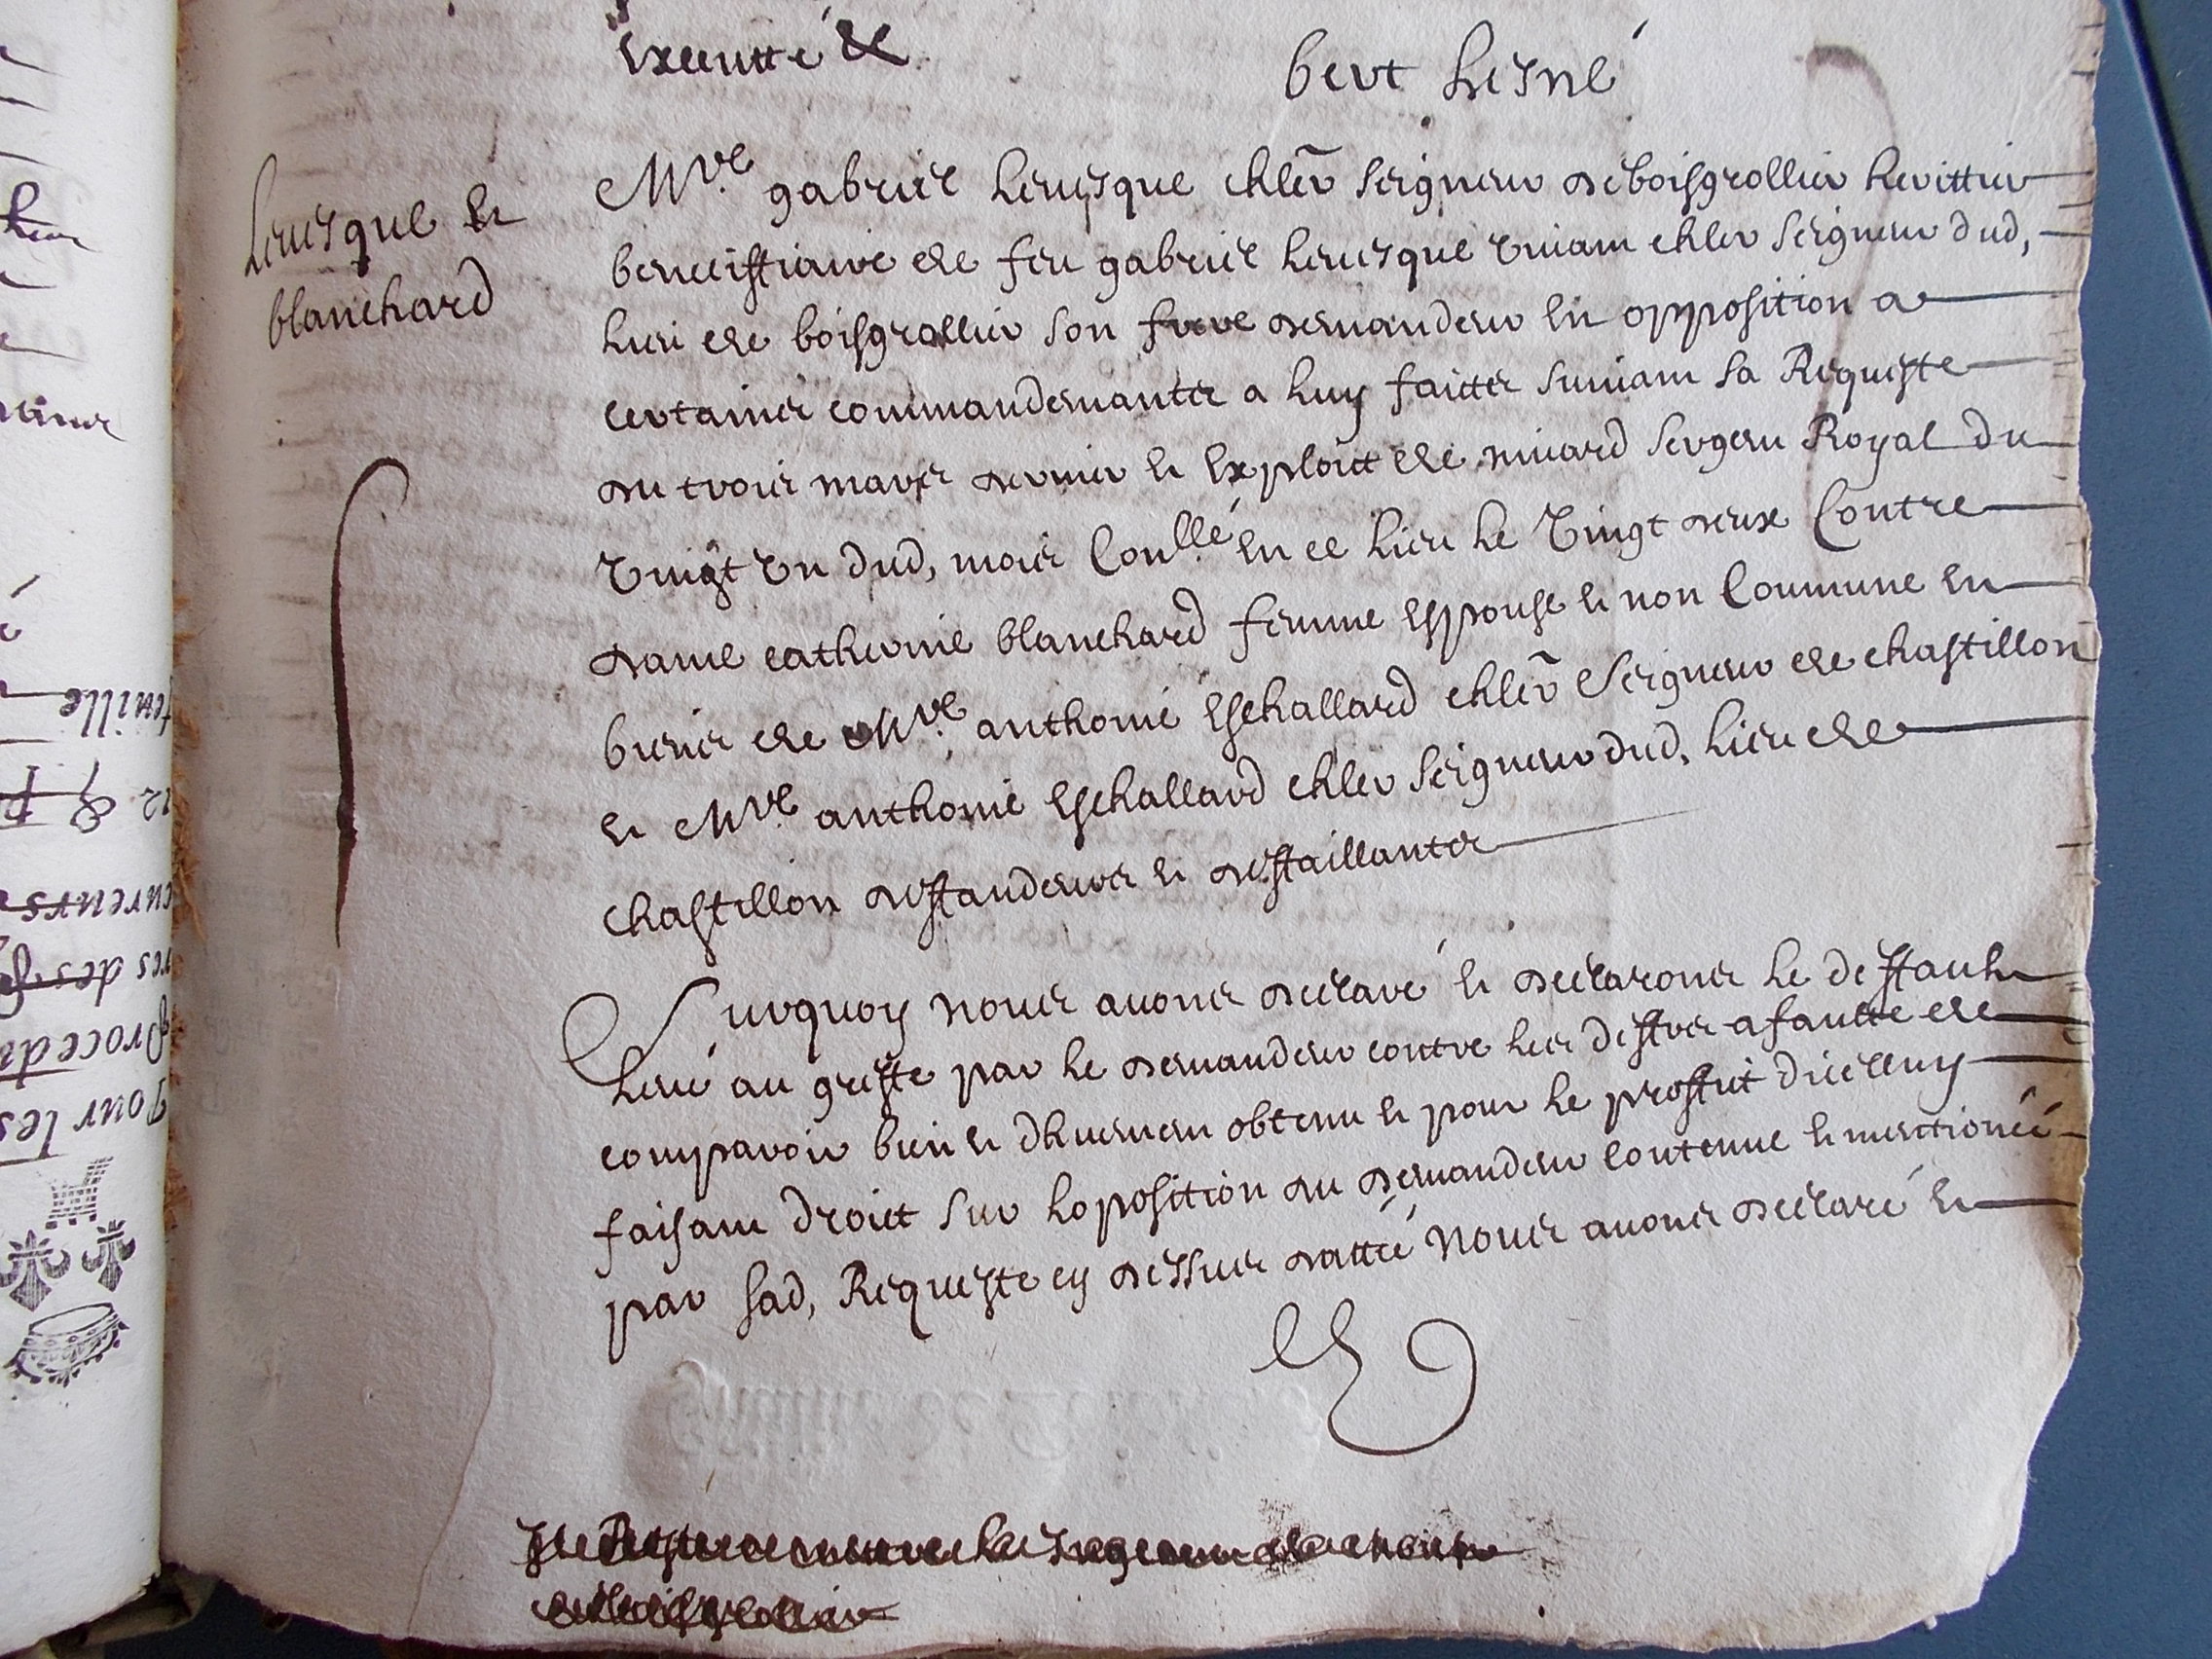 Executté &c
bert Lesné
Levesque et
blanchard
Mre. gabriel Levesque chler seigneur de boisgrollier herittier
beneiffiaire de feu gabriel Levesque vivant chler seigneur dud,
lieu de boisgrollier son frere demandeur en opposition a
certaines commandemantes a luy faittes suivant sa Requeste
du trois mars dernier et Exploitt de miard sergent Royal du
vingt un dud, mois Conllé en ce lieu le vingt deux Contre
dame catherine blanchard femme Espouse et non Commune en
biens de Mre. anthoine Eschallard chler Seigneur de chastillon
et Mre anthoine Eschallard chler seigneur dud, lieu de
chastillon deffandeurs et deffaillantes
Surquoy nous avons declaré et declarons le deffault
levé au greffe par le demandeur contre les deffres a faulte de
comparoir bien et dhuement obtenu et pour le proffict dicelluy
faisant droict sur loposition du demandeur contenue et mentionéé
par sad, Requeste cy dessus dattéé nous avons declaré et
feuille
Procedu
Pour les